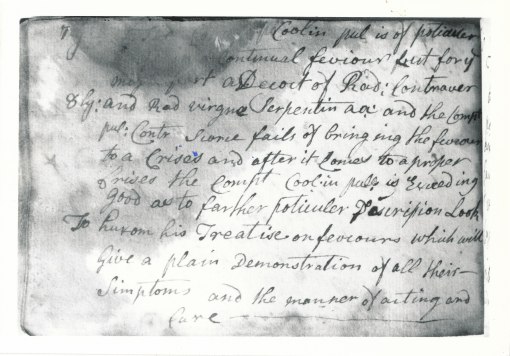 Coolin pul is of poticuler
Continual feviour but for y
a Decoct of Rad: Contraver
& ly: and Rad virgne Serpentin aa: and the Compt
pul: Contr Scorce fails of bringing the feviour
to a Crises and after it Comes to a proper
Crises the Compt Coolin pulls is Exceeding
Good as to farther poticuler Descripsion Look
To huxom his Treatise on feviours which will
Give a plain Demonstration of all their
Simptoms and the manner of acting and
Cure